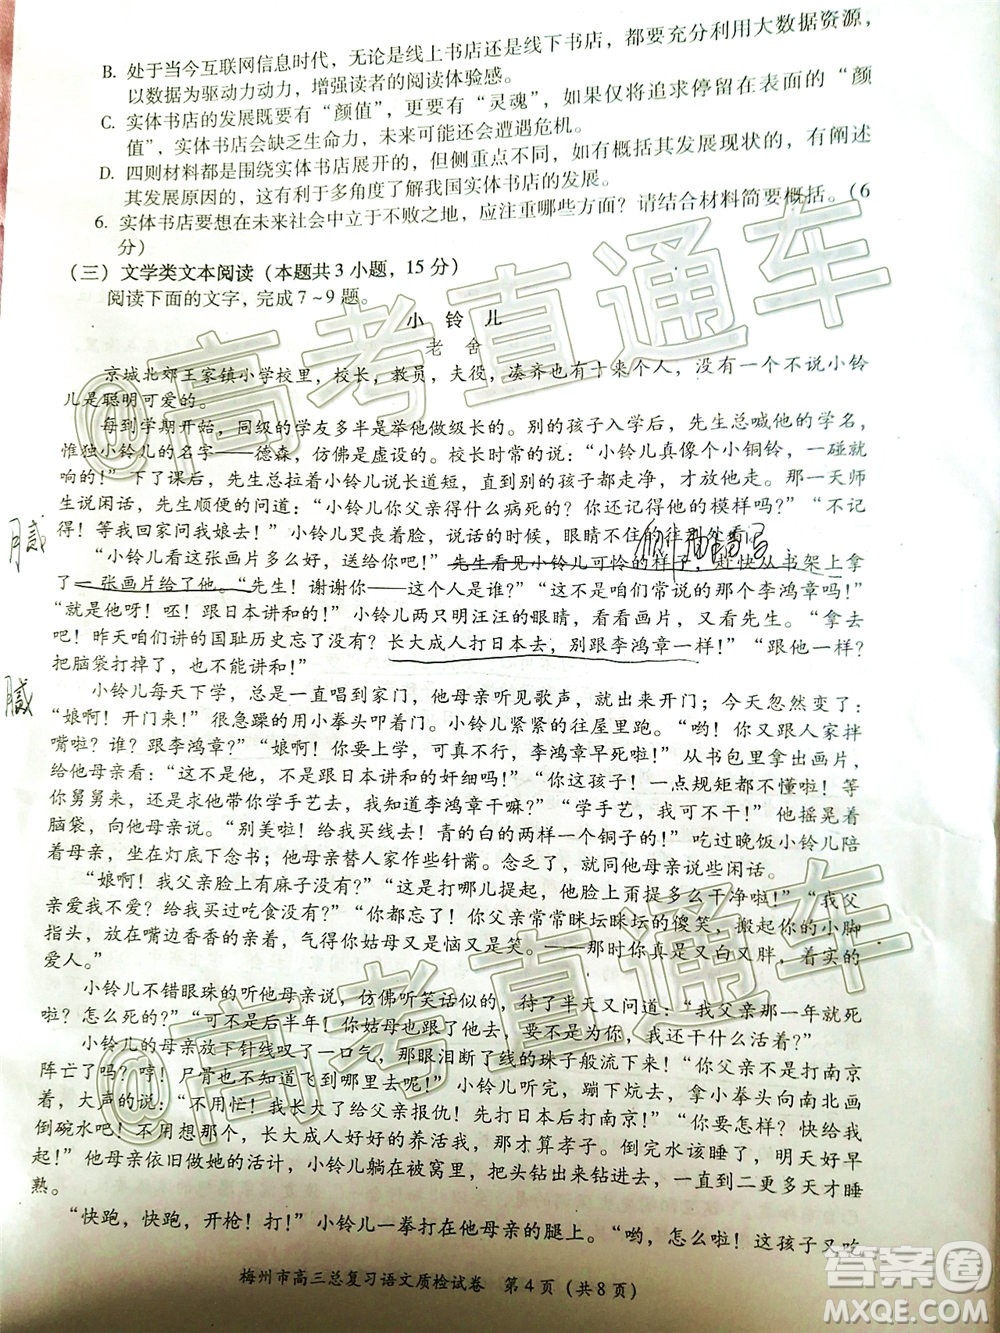 B. 处于当今互联网信息时代，无论是线上书店还是线下书店，都要充分利用大数据资源，
以数据为驱动力动力，增强读者的阅读体验感。
C. 实体书店的发展既要有“颜值”，更要有“灵魂”，如果仅将追求停留在表面的“颜
值”，实体书店会缺乏生命力，未来可能还会遭遇危机。
D. 四则材料都是围绕实体书店展开的，但侧重点不同，如有概括其发展现状的，有阐述
其发展原因的，这有利于多角度了解我国实体书店的发展。
6. 实体书店要想在未来社会中立于不败之地，应注重哪些方面？请结合材料简要概括。（6
分）
（三）文学类文本阅读（本题共3小题，15分）
阅读下面的文字，完成7~9题。
小铃儿
老舍
京城北郊王家镇小学校里，校长，教员，夫役，凑齐也有十来个人，没有一个不说小铃
儿是聪明可爱的。
每到学期开始，同级的学友多半是举他做级长的。别的孩子入学后，先生总喊他的学名，
惟独小铃儿的名字——德森，仿佛是虚设的。校长时常的说：“小铃儿真像个小铜铃，一碰就
响的！”下了课后，先生总拉着小铃儿说长道短，直到别的孩子都走净，才放他走。那一天师
生说闲话，先生顺便的问道：“小铃儿你父亲得什么病死的？你还记得他的模样吗？”“不记
得！等我回家问我娘去！”小铃儿哭丧着脸，说话的时候，眼睛不住的往别处看。
“小铃儿看这张画片多么好，送给你吧！”先生看见小铃儿可怜的样子，赶快从书架上拿
了一张画片给了他。“先生！谢谢你——这个人是谁？”“这不是咱们常说的那个李鸿章吗！”
“就是他呀！呸！跟日本讲和的！”小铃儿两只明汪汪的眼睛，看看画片，又看先生。“拿去
吧！昨天咱们讲的国耻历史忘了没有？长大成人打日本去，别跟李鸿章一样！”“跟他一样？
把脑袋打掉了，也不能讲和！”
小铃儿每天下学，总是一直唱到家门，他母亲听见歌声，就出来开门；今天忽然变了：
“娘啊！开门来！”很急躁的用小拳头叩着门。小铃儿紧紧的往屋里跑。“哟！你又跟人家拌
嘴啦？谁？跟李鸿章？”“娘啊！你要上学，可真不行，李鸿章早死啦！”从书包里拿出画片，
给他母亲看：“这不是他，不是跟日本讲和的奸细吗！”“你这孩子！一点规矩都不懂啦！等
你舅舅来，还是求他带你学手艺去，我知道李鸿章干嘛？”“学手艺，我可不干！”他摇晃着
脑袋，向他母亲说。“别美啦！给我买线去！青的白的两样一个铜子的！”吃过晚饭小铃儿陪
着母亲，坐在灯底下念书；他母亲替人家作些针黹。念乏了，就同他母亲说些闲话。
“娘啊！我父亲脸上有麻子没有？”“这是打哪儿提起，他脸上甭提多么干净啦！”“我父
亲爱我不爱？给我买过吃食没有？”“你都忘了！你父亲常常眯坛眯坛的傻笑，搬起你的小脚
指头，放在嘴边香香的亲着，气得你姑母又是恼又是笑。——那时你真是又白又胖，着实的
爱人。”
小铃儿不错眼珠的听他母亲说，仿佛听笑话似的，待了半天又问道：“我父亲那一年就死
啦？怎么死的？”“可不是后半年！你跟姑母玩去，要不是为你，我还干什么活着？”
小铃儿的母亲放下针线叹了一口气，那眼泪断了线的珠子般流下来！“你父亲不是打南京
阵亡了吗？哼！尸骨也不知道飞到哪里去呢！”小铃儿听完，蹦下炕去，拿小拳头向南北画
着，大声的说：“不用忙！我长大了给父亲报仇！先打日本后打南京！”“你要怎样？快给我
倒碗水吧！不用想那个，长大成人好好的养活我，那才算孝子。倒完水该睡了，明天好早
起！”他母亲依旧做她的活计，小铃儿躺在被窝里，把头钻出来钻进去，一直到二更多天才睡
熟。
“快跑，快跑，开枪！打！”小铃儿一拳打在他母亲的腿上。“哟，怎么啦！这孩子又吃
梅州市高三总复习语文质检试卷 第4页（共8页）
@高考直通车
@高考直通车
答案圈
MXQE.COM